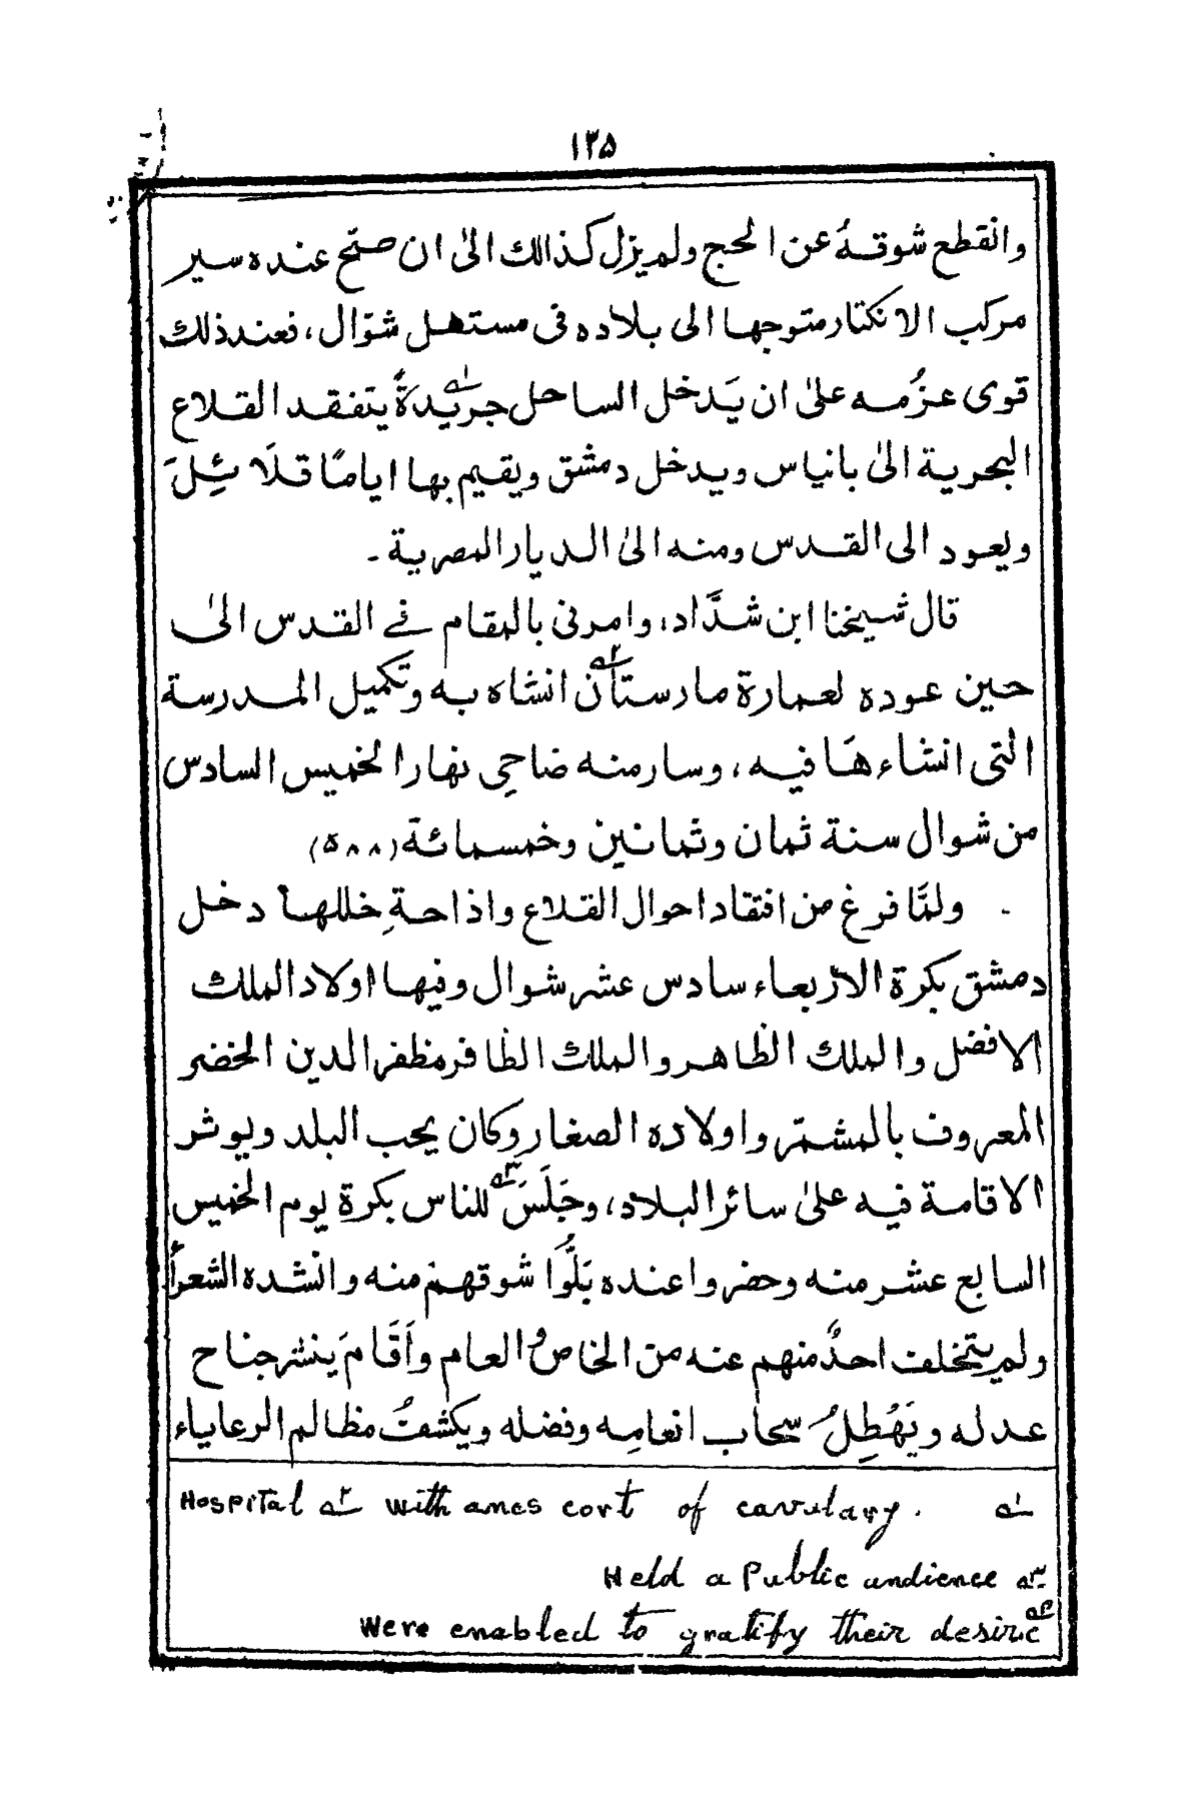 ١٢٥
وانقطع شوقهُ عن الحج ولم يزل كذالك الىٰ ان صحّ عنده سير
مركب الانكتار متوجها الى بلاده فى مستهل شوّال، فعند ذلك
قوى عزُمه علىٰ ان يَدخل الساحل جريدةً يتفقد القلاع
البحرية الىٰ بانياس ويدخل دمشق ويقيم بها ايامًا قلَائِلَ
ويعود الى القدس ومنه الىٰ الديار المصرية -
قال شيخنا ابن شدَّاد، وامرنى بالمقام فے القدس الىٰ
حين عوده لعمارة مارستان انشاه به وتكميل المدرسة
التى انشاءهَا فيه، وسار منه ضاحِى نهار الخميس السادس
من شوال سنة ثمان وثمانين وخمسمائة (۵۸۸)
- ولمَّا فرغ من افتقاد احوال القلاع واذاحةِ خللها دخل
دمشق بكرة الاربعاء سادس عشر شوال وفيها اولاد الملك
الافضل والملك الظاهر والملك الظافر مظفر الدين الخضر
المعروف بالمشمّر واولاده الصغار وكان يحب البلد ويوثر
الاقامة فيه علىٰ سائر البلاد، وجَلَسَ للناس بكرةِ يوم الخميس
السابع عشر منه وحضروا عنده بَلُّوا شوقهم منه وانشده الشعرأ
ولم يتخلف احدٌ منهم عنه من الخاص والعام وأقَامَ ينشر جناح
عدله ويَهُطِلُ سحاب انعامِه وفضله ويكشفُ مظالم الرعاياء
Hospital ٢؎ with ames cort of cavulary. ١؎
Held a Public audience ٣؎
Were enabled to gratify their desire ۵؎